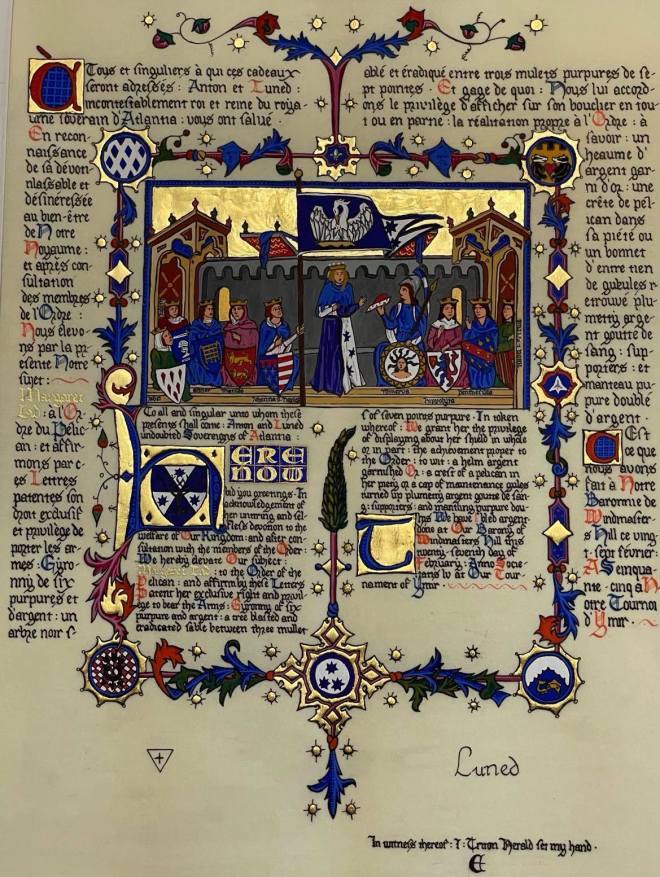 A Tous et singuliers à qui ces cadeaux
seront adressés : Anton et Luned :
incontestablement roi et reine du roya-
ume souverain d'Atlantia : vous ont salué ·
En recon-
naissance
de sa dévon-
nlassable et
désinéressée
au bien-être
de Notre
Royaume :
et après con-
sultation
des membres
de l'Ordre :
Nous élevo-
ns par la pr
ésente Notre
sujet :
Margaret
: à l'Or
dre du Pélic-
an : et affir-
mons par c-
es Lettres
patentes son
droit exclusif
et privilège de
porter les ar-
mes : Gyro-
nny de six
purpures et
d'argent : un
arbre noir f-
ablé et éradiqué entre trois mulets purpures de se-
pt pointes · Et gage de quoi : Nous lui accord-
ons le privilège d'afficher sur son bouclier en tou-
t ou en partie : la réalitation propre à l'Ordre : à
savoir : un
heaume d'
argent gar-
ni d'or : une
crête de pél-
ican dans
sa piété ou
un bonnet
d'entre tien
de gueules r-
etrouvé plu-
metty arge-
nt goutte de
sang : sup-
porters : et
manteau pu-
pure doublé
d'argent ·
C'Est
ce que
nous avons
fait à Notre
Baronnie de
Windmaster-
s Hill ce ving-
t-sept février :
A S einqua-
nte-cinq à N
otre Tournoi
d'Ymir ·
To all and singular unto whom these
presents shall come : Anton and Luned
undoubted Sovereigns of Atlantia :
HERE
NOW
bid you greetings · In
acknowledgement of
her unending and sel-
fless devotion to the
welfare of Our Kingdom : and after con-
sultation with the members of the Order
We hereby elevate Our subject
: to the Order of the
Pelican : and affirm by these Letters
Patent her exclusive right and privil-
ege to bear the Arms : Gyronny of six
purpure and argent : a tree blasted and
eradicated sable between three mullet
s of seven points purpure · In token
whereof : We grant her the privilege
of displaying about her shield in whole
or in part : the achievement proper to
the Order : to wit : a helm argent
garnished Or : a crest of a pelican in
her piety or a cap of maintenance gules
turned up plumetty argent goutte de san-
g : supporters : and mantling purpure dou-
This We have bled argent
done at Our Barony of
Windmasters Hill this
twenty-seventh day of
February : Anno Socie-
tatis lv at Our Tour-
nament of Ymir ·
Luned
In witness thereof : I : Triton Herald set my hand ·
E